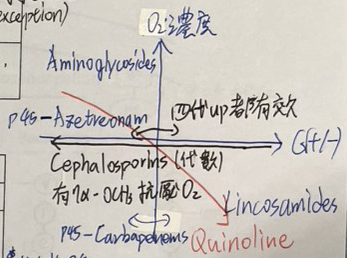 exception)
O₂濃度
Aminoglycosides
P45-Azetreonam
四代up者都有效
G(+/-)
Cephalosporins (代數)
有7α-OCH₃ 抗厭O₂
Lincosamides
P45-Carbapenems
Quinoline